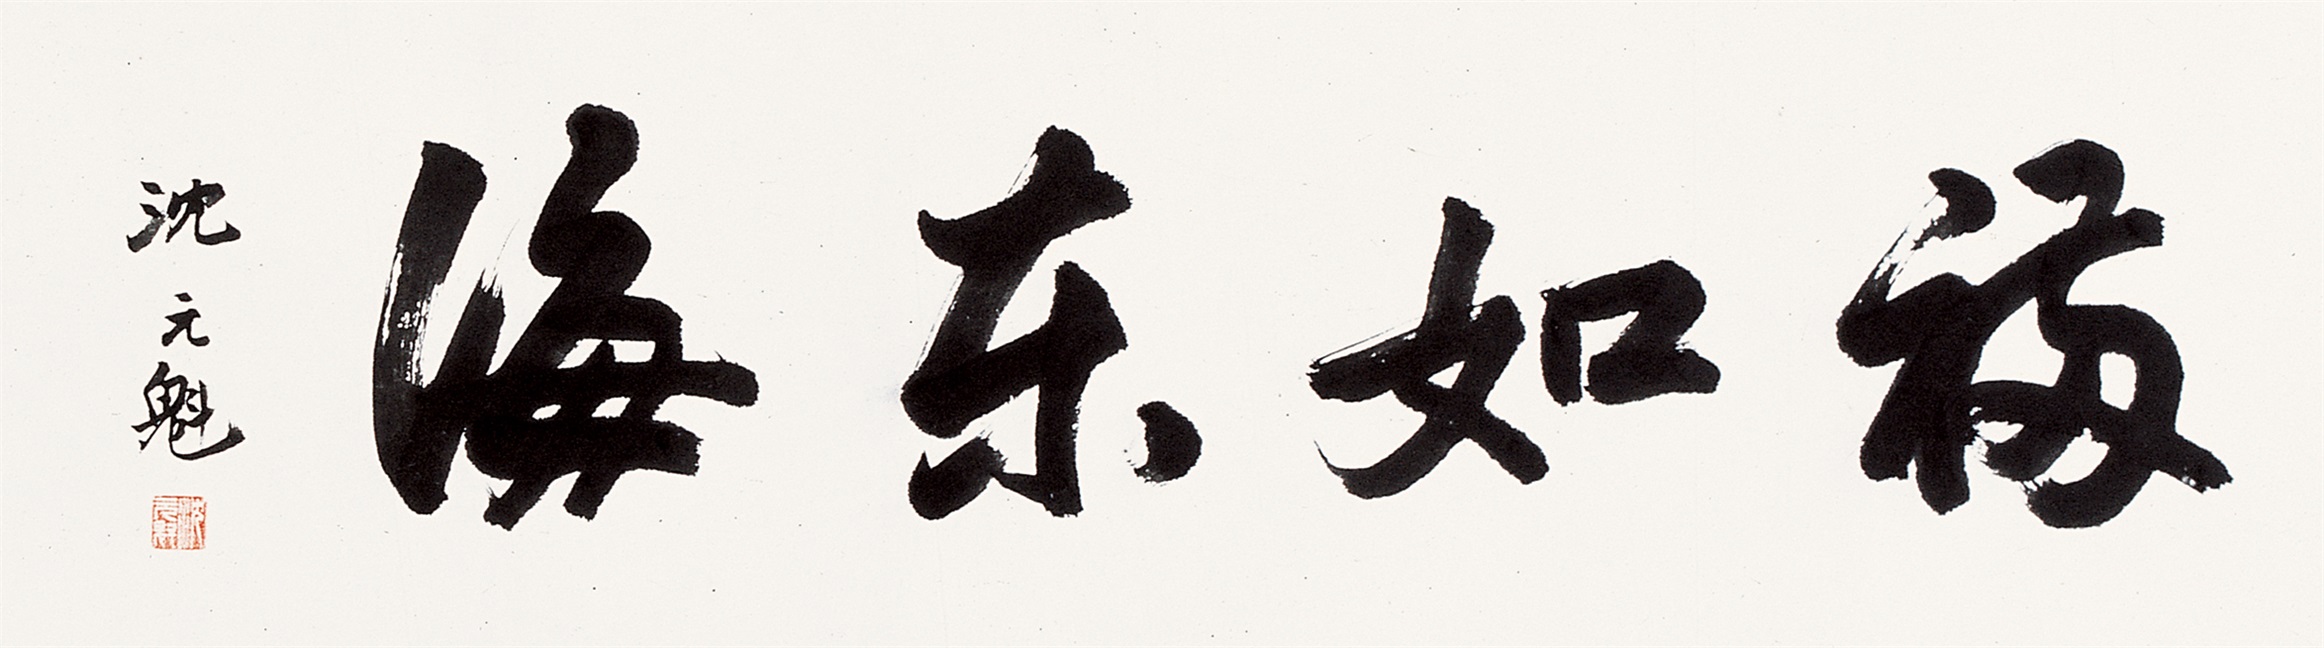 福如东海
沈元魁